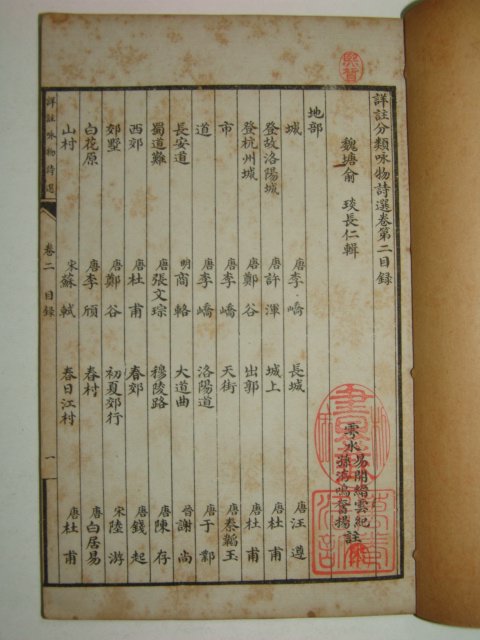 詳註分類咏物詩選卷第二目録
魏塘俞 琰長仁輯
易開縉雲紀
霅水 孫洊鳴奮揚 註
地部
城 唐李嶠 長城 唐汪遵
登故洛陽城 唐許渾 城上 唐杜甫
登杭州城 唐鄭谷 出郭 唐杜甫
市 唐李嶠 天街 唐秦韜玉
道 唐李嶠 洛陽道 唐于鄴
長安道 明商輅 大道曲 晉謝尚
蜀道難 唐張文琮 穆陵路 唐陳存
西郊 唐杜甫 春郊 唐錢起
郊墅 唐鄭谷 初夏郊行 宋陸游
白花原 唐李頎 春村 唐白居易
山村 宋蘇軾 春日江村 唐杜甫
詳註咏物詩選 卷二 目録 一